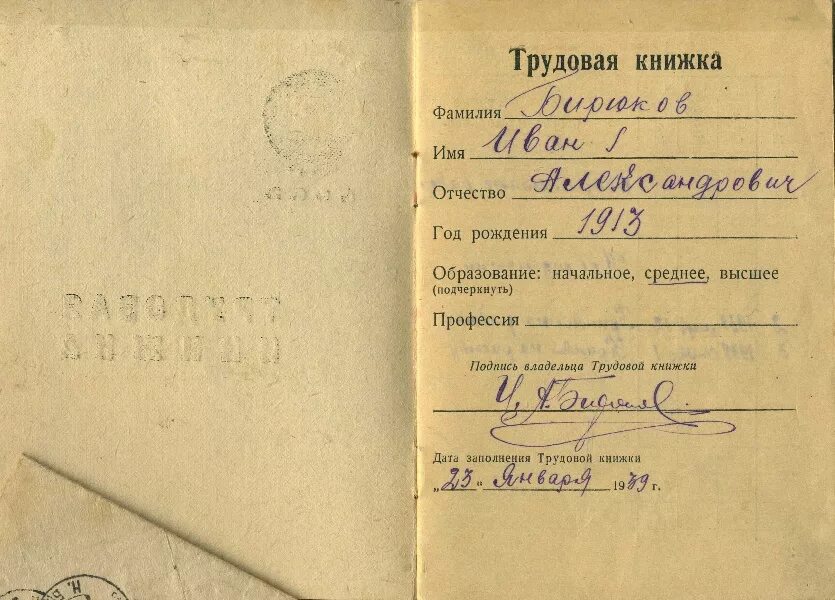 Трудовая книжка
Фамилия Бирюков
Имя Иван
Отчество Александрович
Год рождения 1913
Образование: начальное, среднее, высшее
(подчеркнуть)
Профессия
Подпись владельца Трудовой книжки
И. А. Бирюков
Дата заполнения Трудовой книжки
„23“ Января 1939 г.
ТРУДОВАЯ
КНИЖКА